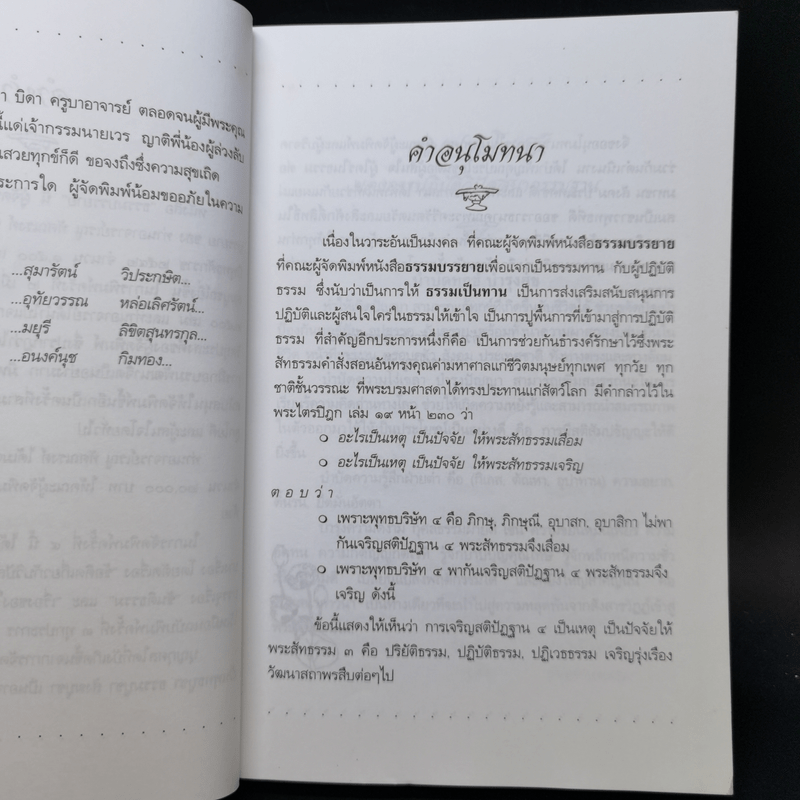 า บิดา ครูบาอาจารย์ ตลอดจนผู้มีพระคุณ
นี้แด่เจ้ากรรมนายเวร ญาติพี่น้องผู้ล่วงลับ
นเสวยทุกข์ก็ดี ขอจงถึงซึ่งความสุขเถิด
ระการใด ผู้จัดพิมพ์น้อมขออภัยในความ
...สุมารัตน์ วิประกษิต...
...อุทัยวรรณ หล่อเลิศรัตน์...
...มยุรี ลิขิตสุนทรกุล...
...อนงค์นุช กิมทอง...
คำอนุโมทนา
เนื่องในวาระอันเป็นมงคล ที่คณะผู้จัดพิมพ์หนังสือธรรมบรรยาย
ที่คณะผู้จัดพิมพ์หนังสือธรรมบรรยายเพื่อแจกเป็นธรรมทาน กับผู้ปฏิบัติ
ธรรม ซึ่งนับว่าเป็นการให้ ธรรมเป็นทาน เป็นการส่งเสริมสนับสนุนการ
ปฏิบัติและผู้สนใจใคร่ในธรรมให้เข้าใจ เป็นการปูพื้นการที่เข้ามาสู่การปฏิบัติ
ธรรม ที่สำคัญอีกประการหนึ่งก็คือ เป็นการช่วยกันธำรงค์รักษาไว้ซึ่งพระ
สัทธรรมคำสั่งสอนอันทรงคุณค่ามหาศาลแก่ชีวิตมนุษย์ทุกเพศ ทุกวัย ทุก
ชาติชั้นวรรณะ ที่พระบรมศาสดาได้ทรงประทานแก่สัตว์โลก มีคำกล่าวไว้ใน
พระไตรปิฎก เล่ม ๑๙ หน้า ๒๓๐ ว่า
❍ อะไรเป็นเหตุ เป็นปัจจัย ให้พระสัทธรรมเสื่อม
❍ อะไรเป็นเหตุ เป็นปัจจัย ให้พระสัทธรรมเจริญ
ตอบว่า
❍ เพราะพุทธบริษัท ๔ คือ ภิกษุ, ภิกษุณี, อุบาสก, อุบาสิกา ไม่พา
กันเจริญสติปัฏฐาน ๔ พระสัทธรรมจึงเสื่อม
❍ เพราะพุทธบริษัท ๔ พากันเจริญสติปัฏฐาน ๔ พระสัทธรรมจึง
เจริญ ดังนี้
ข้อนี้แสดงให้เห็นว่า การเจริญสติปัฏฐาน ๔ เป็นเหตุ เป็นปัจจัยให้
พระสัทธรรม ๓ คือ ปริยัติธรรม, ปฏิบัติธรรม, ปฏิเวธธรรม เจริญรุ่งเรือง
วัฒนาสถาพรสืบต่อๆไป